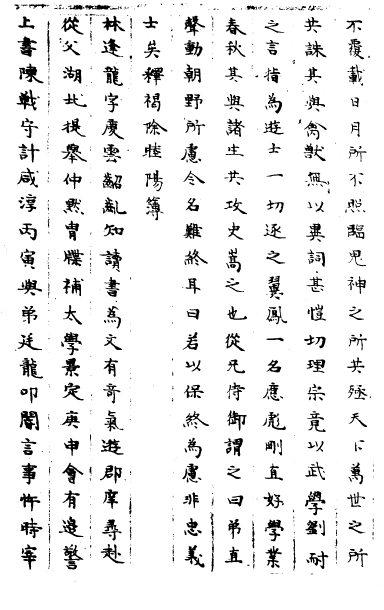 不覆載日月所不照臨鬼神之所共殛天下萬世之所
共誅其與禽獸無以異詞甚愷切理宗竟以武學劉耐
之言指為遊士一切逐之翼鳳一名應彪剛直好學業
春秋其與諸生共攻史嵩之也從兄侍御謂之曰弟直
聲動朝野所慮令名難終耳曰若以保終為慮非忠義
士矣釋褐除睦陽簿
林逢龍字慶雲齠齔知讀書為文有奇氣遊郡庠尋赴
從父湖北提舉仲㷍胄牒補太學景定庚申會有邊警
上書陳戰守計咸淳丙寅與弟廷龍叩閽言事忤時宰